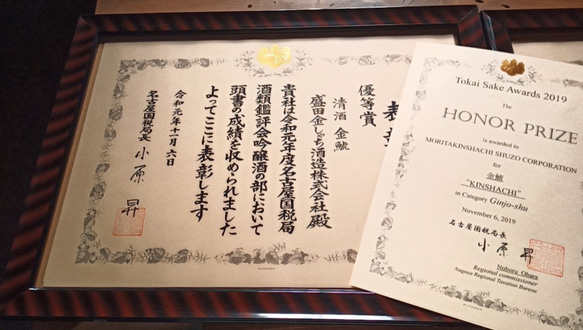 表
優等賞
清酒 金鯱
盛田金しゃち酒造株式会社殿
貴社は令和元年度名古屋国税局
酒類鑑評会吟醸酒の部において
頭書の成績を収められました
よってここに表彰します
令和元年十一月六日
名古屋国税局長 小原 昇
Tokai Sake Awards 2019
The
HONOR PRIZE
is awarded to
MORITAKINSHACHI SHUZO CORPORATION
for
金鯱
"KINSHACHI"
in Category Ginjo-shu
November 6, 2019
名古屋国税局長
小原 昇
Noboru Ohara
Regional commissioner
Nagoya Regional Taxation Bureau